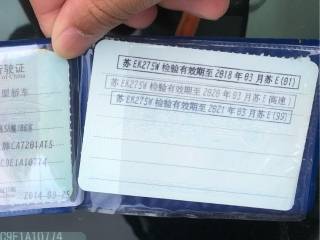 驶证
of China
型轿车
牌CA7201AT5
C9E1A10774
苏EK275W检验有效期至2018年03月苏E(01)
苏EK275W检验有效期至2020年03月苏E(高速)
苏EK275W检验有效期至2021年03月苏E(99)
C9F1A10774